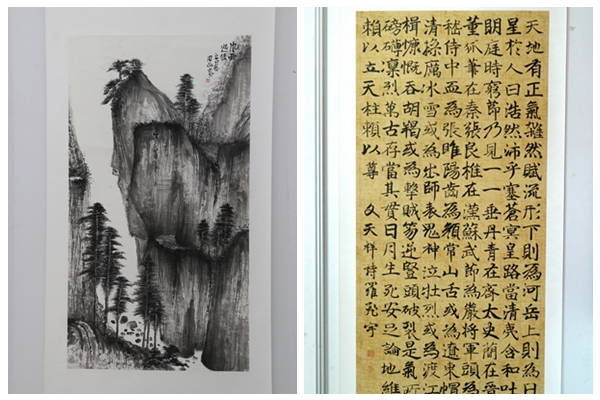 天地有正氣雜然賦流形下則為河岳上則為日
星於人曰浩然沛乎塞蒼冥皇路當清夷含和吐
明庭時窮節乃見一一垂丹青在齊太史簡在晉
董狐筆在秦張良椎在漢蘇武節為嚴將軍頭為
嵇侍中血為張睢陽齒為顏常山舌或為遼東帽
清操厲冰雪或為出師表鬼神泣壯烈或為渡江
楫慷慨吞胡羯或為擊賊笏逆豎頭破裂是氣所
磅礴凜烈萬古存當其貫日月生死安足論地維
賴以立天柱賴以尊 文天祥詩羅飛宇